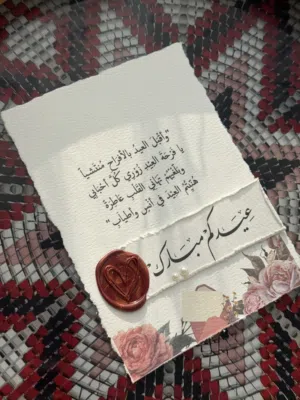 "وأقبل العيد بالأفراح مُنتشياً
يا فرحة العيد زوري كل أحبابي
وبلغيهم تهاني القلب عاطرة
هنيتم العيد في أُنس وأطياب"
عيدكم مبارك